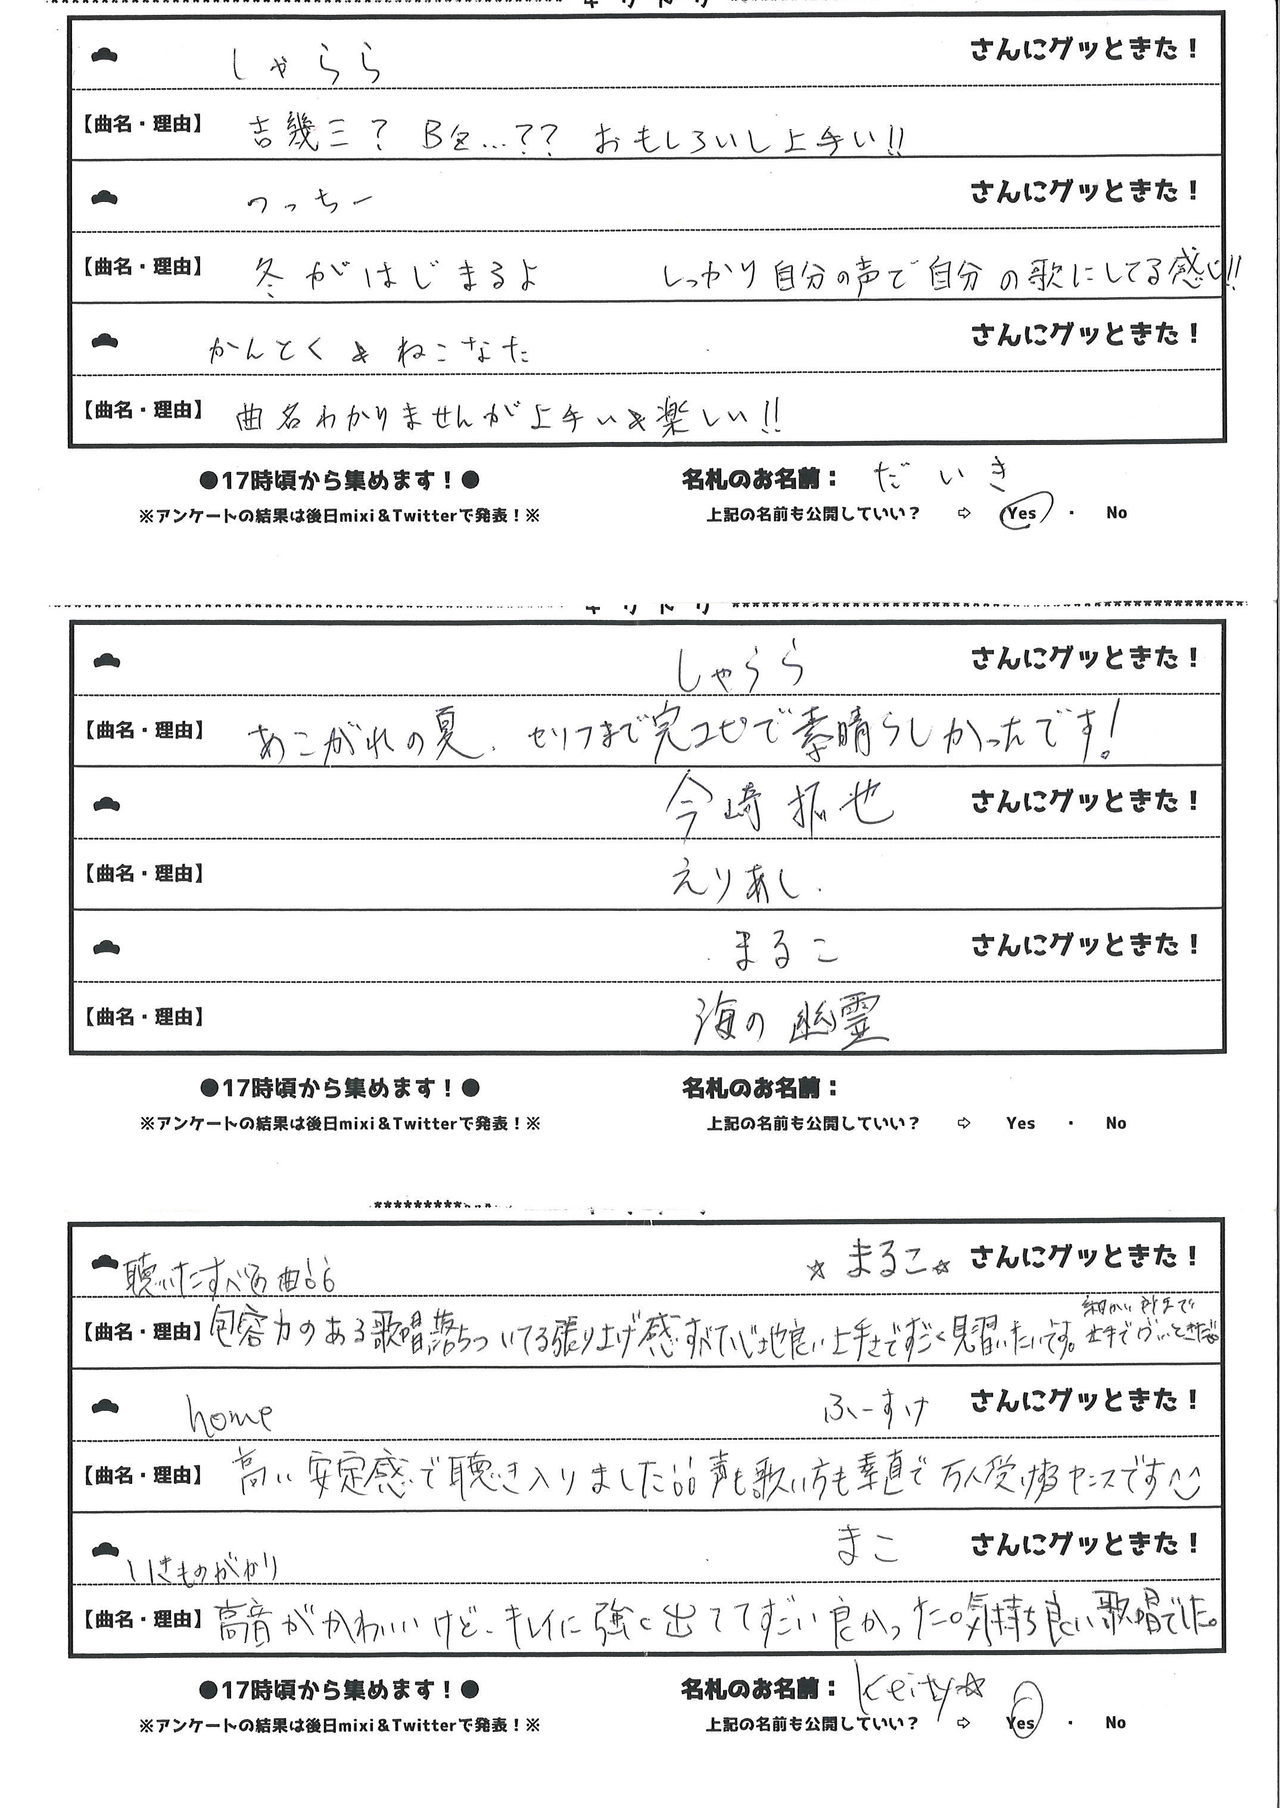 しゃらら さんにグッときた！
【曲名・理由】 吉幾三？ B'z…？？ おもしろいし上手い!!
つっちー さんにグッときた！
【曲名・理由】 冬がはじまるよ しっかり自分の声で自分の歌にしてる感じ!!
かんとく & ねこなた さんにグッときた！
【曲名・理由】 曲名わかりませんが上手い&楽しい!!
●17時頃から集めます！● 名札のお名前： だいき
※アンケートの結果は後日mixi＆Twitterで発表！※ 上記の名前も公開していい？ ⇨ Yes ・ No
キリトリ
しゃらら さんにグッときた！
【曲名・理由】 あこがれの夏、セリフまで完コピで素晴らしかったです！
今崎拓也 さんにグッときた！
【曲名・理由】 えりあし.
まるこ さんにグッときた！
【曲名・理由】 海の幽霊
●17時頃から集めます！● 名札のお名前：
※アンケートの結果は後日mixi＆Twitterで発表！※ 上記の名前も公開していい？ ⇨ Yes ・ No
聴いたすべての曲 ☆まるこ☆ さんにグッときた！
【曲名・理由】 包容力のある歌唱、落ちついてる張り上げ感すべて心地良い上手さですごく見習いたいです。 細かい所まで上手で
home ふーすけ さんにグッときた！
【曲名・理由】 高い安定感で聴き入りました 声も歌い方も素直で万人受けする センスです^^
いきものがかり まこ さんにグッときた！
【曲名・理由】 高音がかわいいけど、キレイに強く出ててすごい良かった。気持ち良い歌唱でした。
●17時頃から集めます！● 名札のお名前： keity☆
※アンケートの結果は後日mixi＆Twitterで発表！※ 上記の名前も公開していい？ ⇨ Yes ・ No